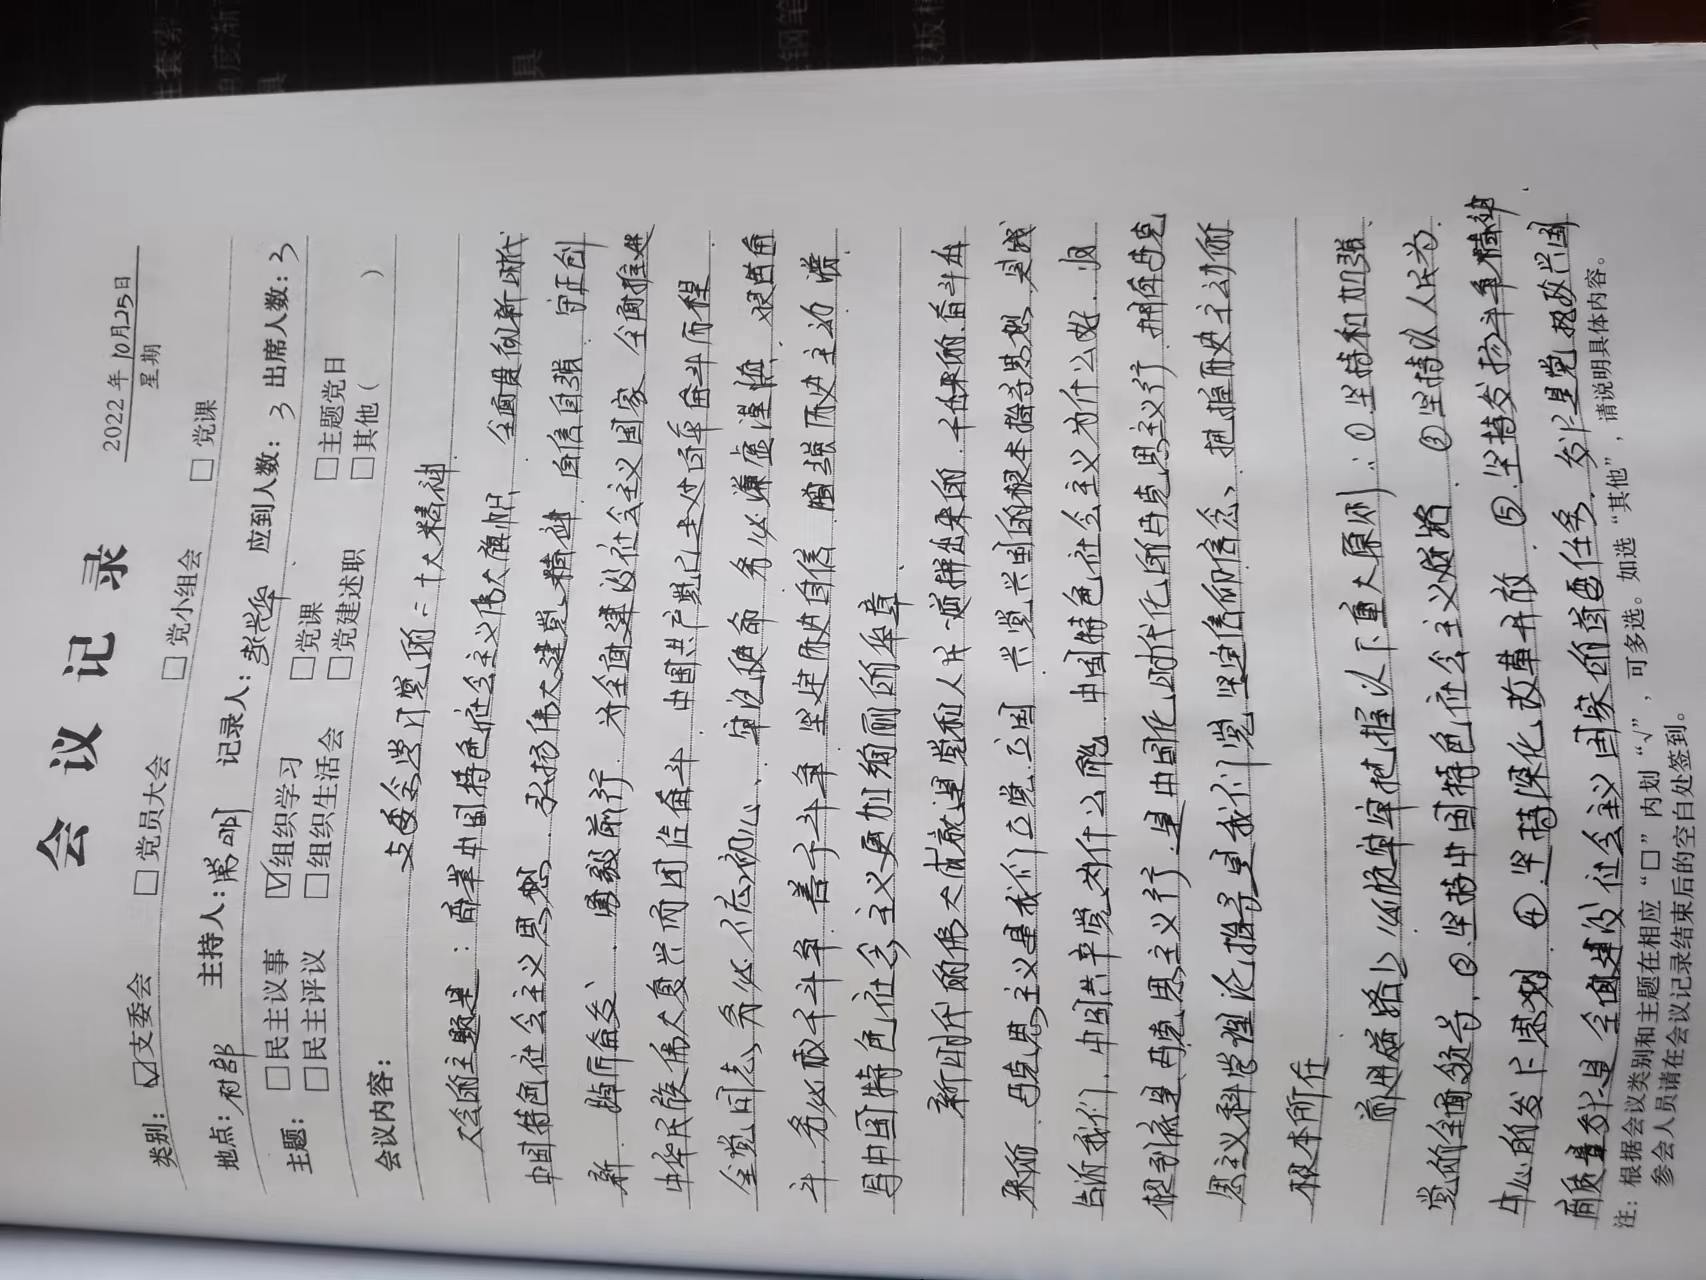 会议记录
2022年10月25日
星期
类别：☑支委会 □党员大会 □党小组会 □党课
地点：村部 主持人：常明 记录人： 应到人数：3 出席人数：3
主题：□民主议事 ☑组织学习 □党课 □主题党日
□民主评议 □组织生活会 □党建述职 □其他（ ）
会议内容：
支委会学习党的二十大精神
大会的主题是：高举中国特色社会主义伟大旗帜 全面贯彻新时代
中国特色社会主义思想、弘扬伟大建党精神 自信自强 守正创
新、踔厉奋发、勇毅前行 为全面建设社会主义国家 全面推进
中华民族伟大复兴而团结奋斗 中国共产党已走过百年奋斗历程
全党同志务必不忘初心、牢记使命 务必谦虚谨慎 艰苦奋
斗 务必敢于斗争 善于斗争 坚定历史自信 增强历史主动 谱
写中国特色社会主义更加绚丽的华章
新时代的伟大成就是党和人民一道拼出来的 干出来的 奋斗出
来的 马克思主义是我们立党立国 兴党兴国的根本指导思想 实践
告诉我们，中国共产党为什么能 中国特色社会主义为什么好，归
根到底是马克思主义行 是中国化时代化的马克思主义行 拥有马克
思主义科学理论指导是我们党坚定信仰信念、把握历史主动的
根本所在
前进道路上 必须牢牢把握以下重大原则：①坚持和加强
党的全面领导，②坚持中国特色社会主义道路 ③坚持以人民为
中心的发展思想 ④坚持深化改革开放 ⑤坚持发扬斗争精神
高质量发展是全面建设社会主义国家的首要任务 发展是党执政兴国
注：根据会议类别和主题在相应“□”内划“√”，可多选。如选“其他”，请说明具体内容。
参会人员请在会议记录结束后的空白处签到。